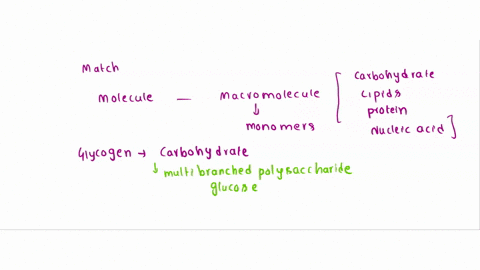 Match
Molecule — Macromolecule
↓
monomers
[ Carbohydrate
Lipids
protein
Nucleic acid ]
Glycogen → Carbohydrate
↓ multibranched polysaccharide
glucose